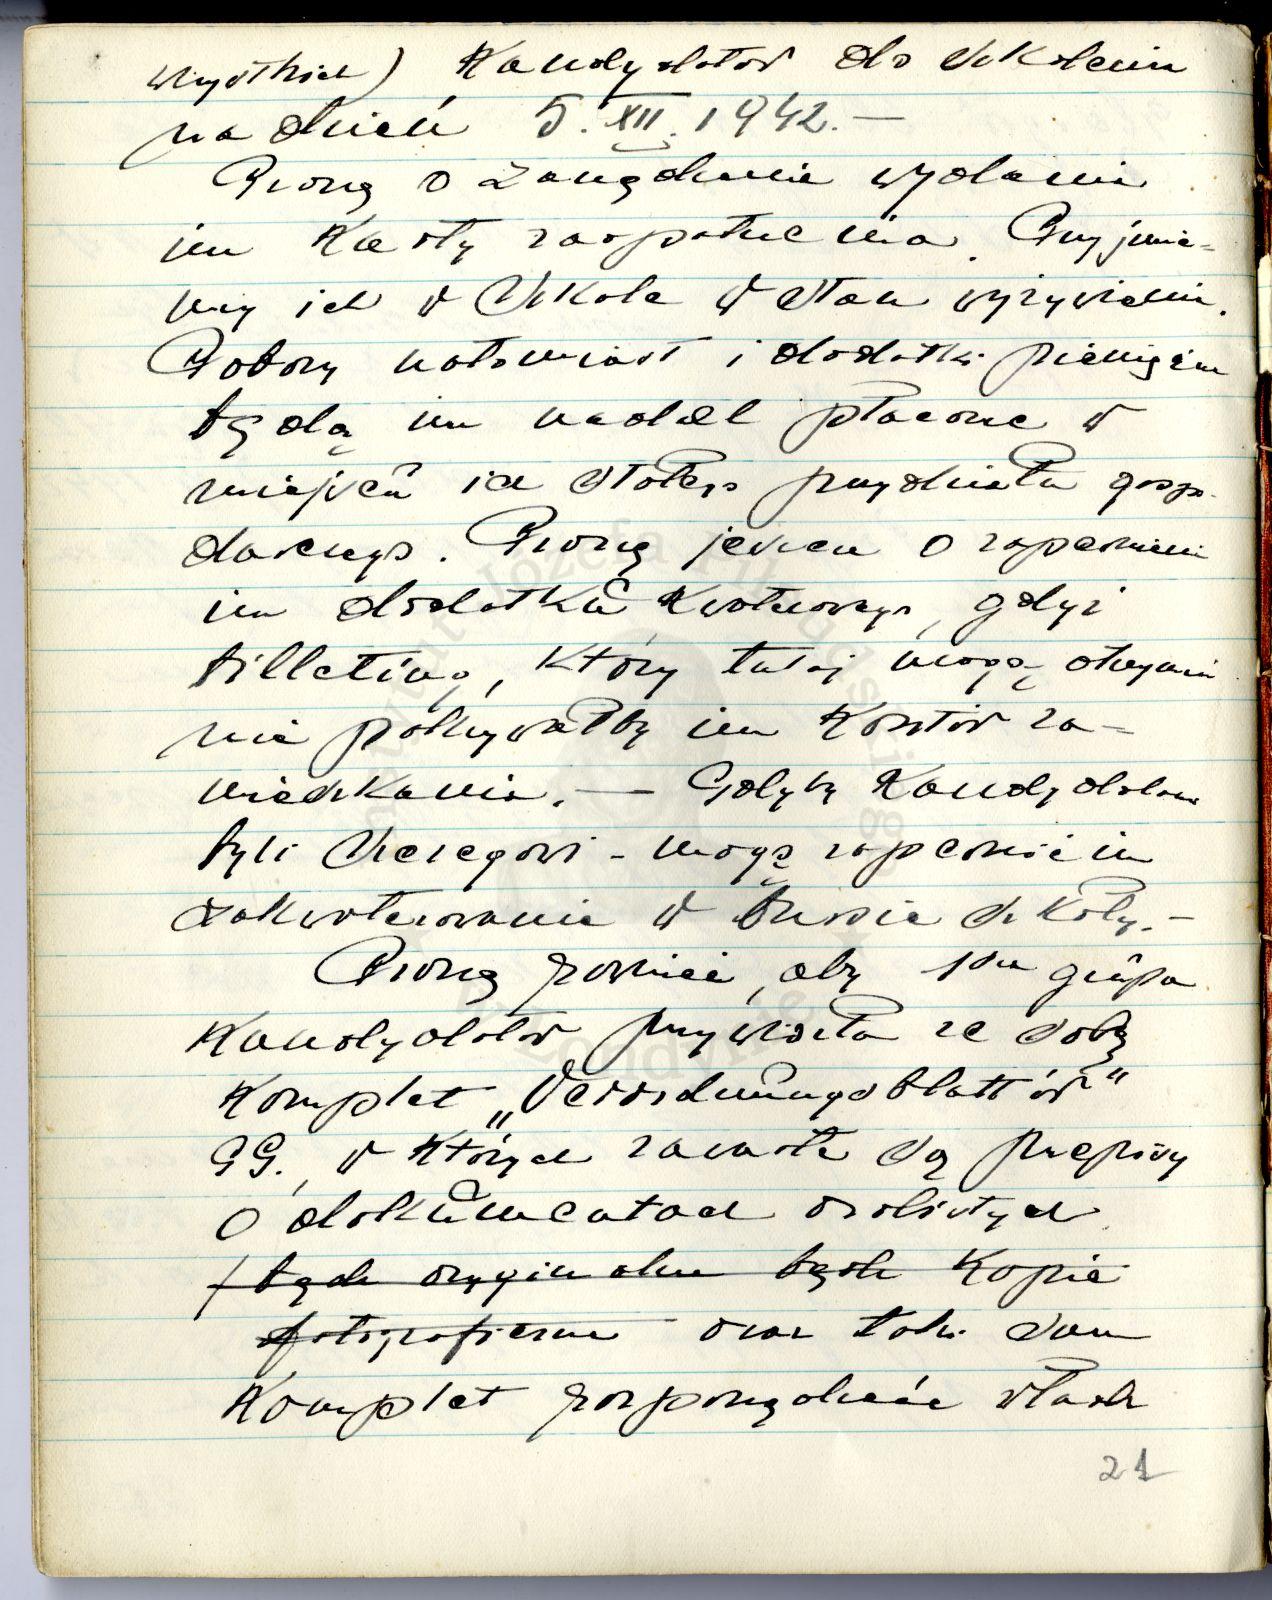 wszystkich) Kandydatów do szkolenia
na dzień 5.XII.1942.—
Proszę o zarządzenie wydania
im Karty zaopatrzenia. Przyjmie=
my ich w Szkole w stan wyżywienia.
Pobory natomiast i dodatki pieniężne
będą im nadal płacone w
miejscu ich stałego przydziału gospo-
darczego. Proszę jeszcze o zapewnienie
im dodatku kwaterowego, gdyż
billeting, który tutaj mogą otrzymać
nie pokrywałby im Kosztów za-
mieszkania.— Gdyby Kandydatami
byli szeregowi - mogę zapewnić im
zakwaterowanie w bursie szkoły.—
Proszę również, aby 1sza grupa
Kandydatów przywiozła ze sobą
Komplet „Verordnungsblattów"
GG., w których zawarte są przepisy
o dokumentach osobistych
(bądź oryginalne bądź Kopie
fotograficzne - oraz taki sam
Komplet rozporządzeń władz
21
Instytut Józefa Piłsudskiego
w Londynie